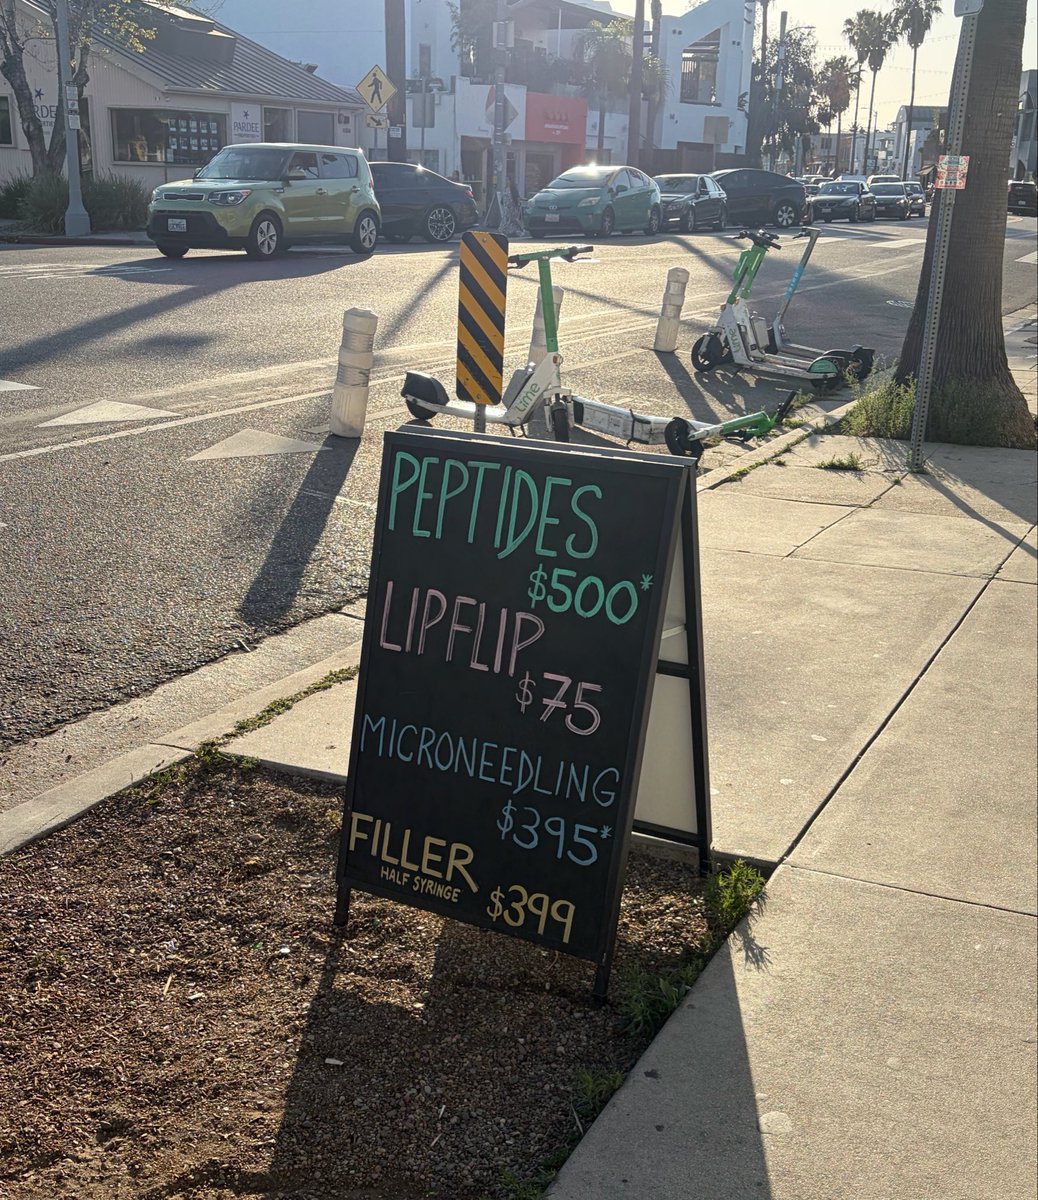 PEPTIDES
$500*
LIPFLIP
$75
MICRONEEDLING
$395*
FILLER
HALF SYRINGE
$399
PARDEE
PARDEE
Lime
Lime